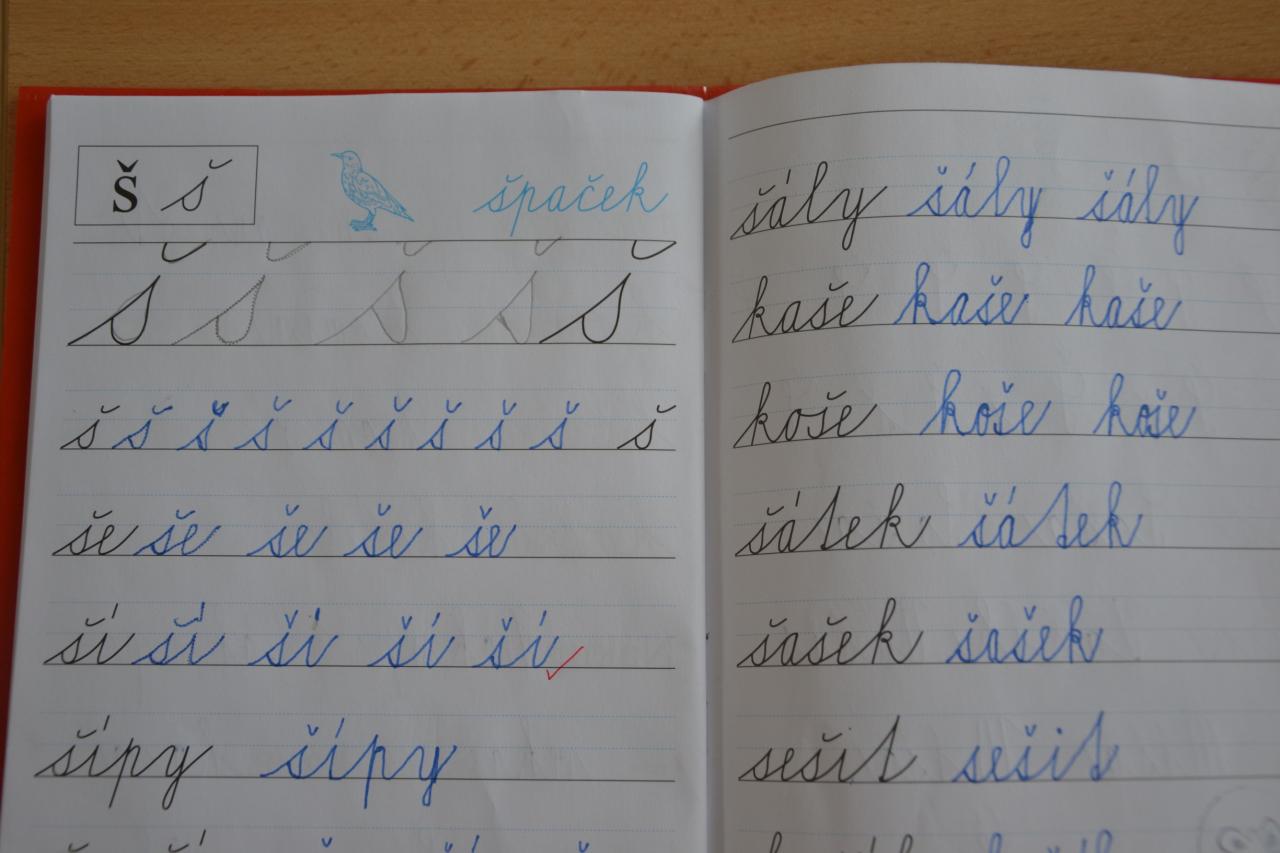 š š špaček
š š š š š
š š š š š š š š š š
še še še še še
ší ší ší ší ší
šípy šípy
šály šály šály
kaše kaše kaše
koše koše koše
šátek šátek
šašek šašek
sešit sešit